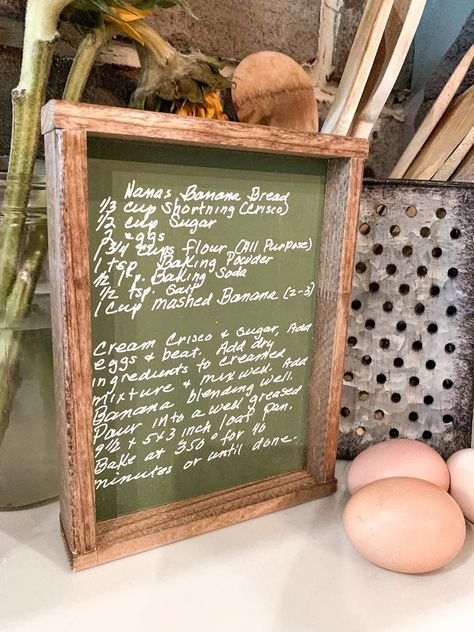 Nanas Banana Bread
1/3 cup Shortning (Crisco)
1/2 cup Sugar
2 eggs
1 3/4 cups flour (All Purpose)
1 tsp. Baking Powder
1/2 tp. Baking Soda
1/2 tsp. Salt
1 cup mashed Banana (2-3)
Cream Crisco & Sugar, Add
eggs & beat. Add dry
ingredients to creamed
mixture & mix well. Add
Banana blending well.
Pour into a well greased
9 1/2 x 5 x 3 inch loaf pan.
Bake at 350° for 40
minutes or until done.